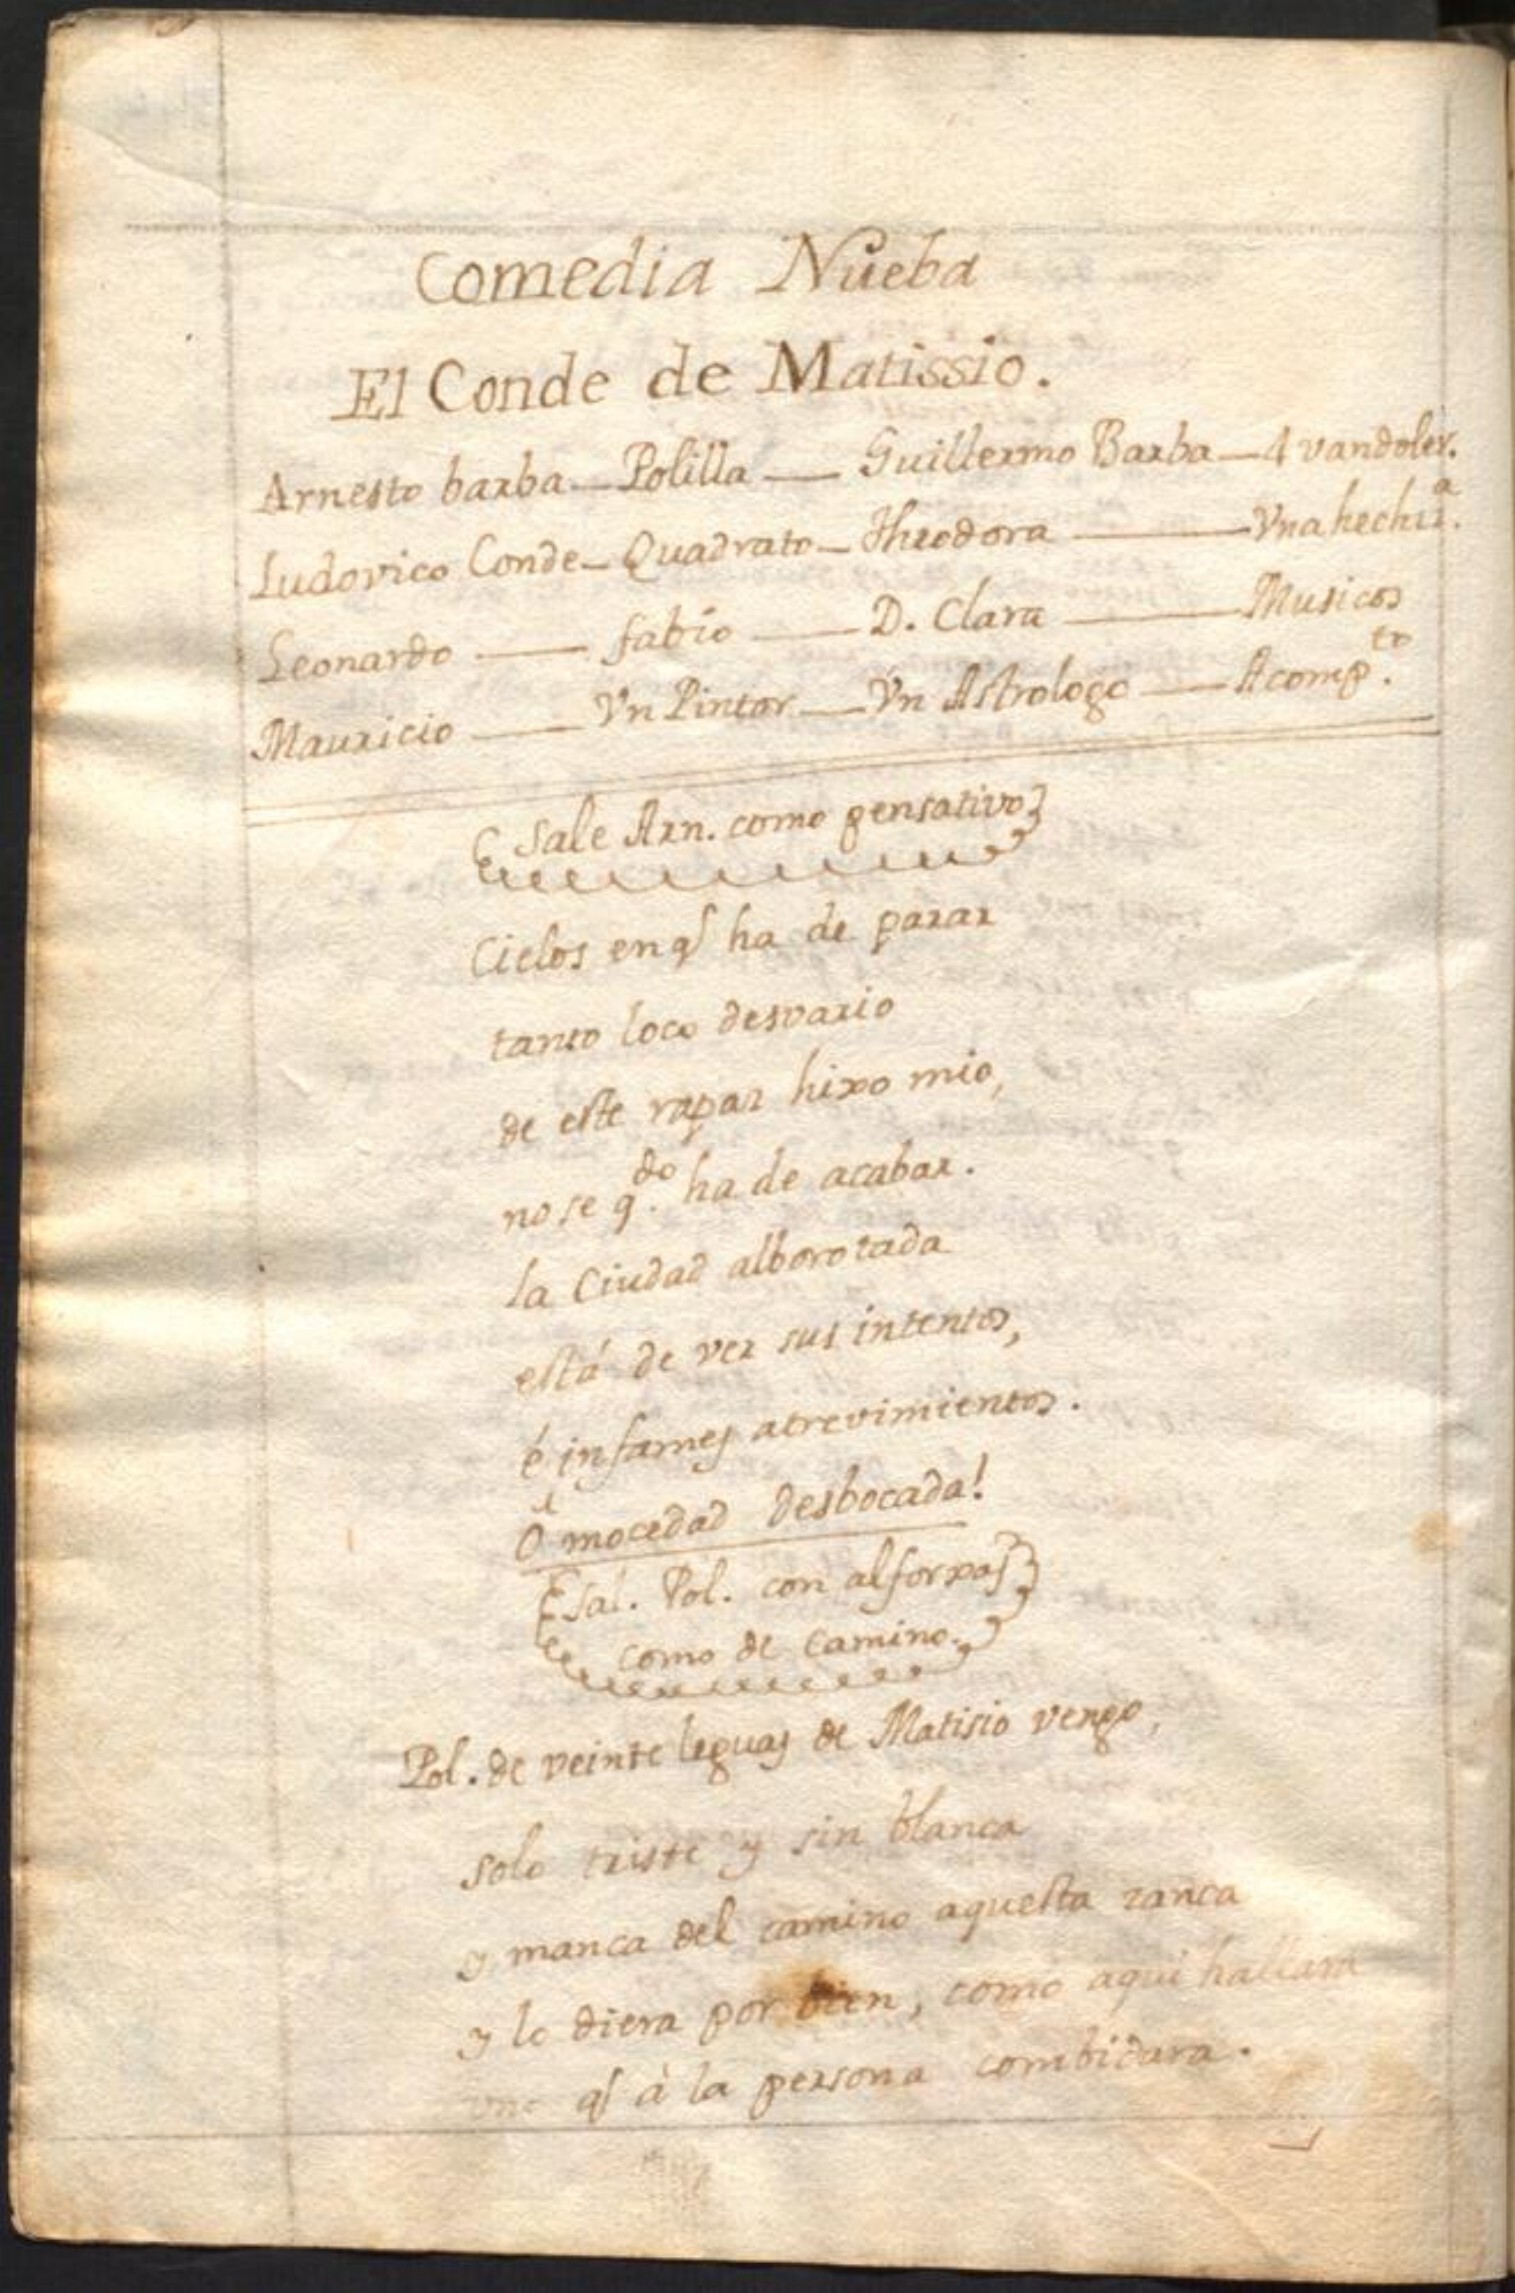 Comedia Nueba
El Conde de Matissio.
Arnesto barba — Polilla — Guillermo Barba — 4 vandoler.
Ludovico Conde — Quadrato — Theodora — Vna hechiª.
Leonardo — fabio — D. Clara — Musicos
Mauricio — Vn Pintor — Vn Astrologo — Acompto.
Sale Arn. como pensativo
Cielos en q ha de parar
tanto loco desvario
de este rapaz hixo mio,
no se qdo. ha de acabar.
la Ciudad alborotada
está de ver sus intentos,
é infames atrevimientos.
O mocedad desbocada!
Sal. Pol. con alforxas
como de camino.
Pol. de veinte leguas de Matisio vengo,
solo triste y sin blanca
y manca del camino aquesta zanca
y lo diera por bien, como aqui hallara
uno q à la persona combidara.